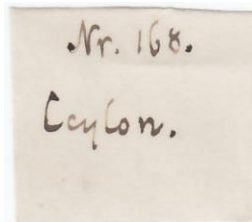 Nr. 168.
Ceylon.